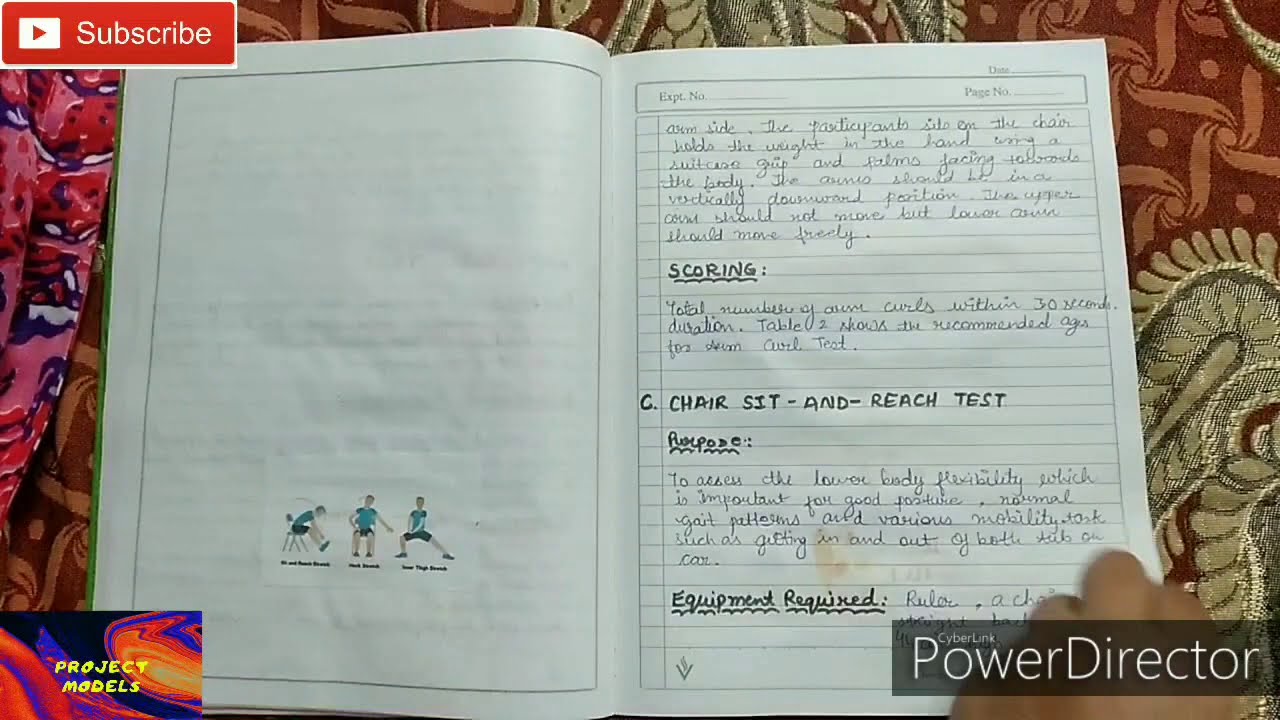 Subscribe
Date
Expt. No.
Page No.
arm side. The participants sits on the chair
holds the weight in the hand using a
suitcase grip and palms facing towards
the body. The arms should be in a
vertically downward position. The upper
arm should not move but lower arm
should move freely.
SCORING:
Total number of arm curls within 30 seconds.
duration. Table 2 shows the recommended ages
for Arm Curl Test.
C. CHAIR SIT-AND-REACH TEST
Purpose:
To assess the lower body flexibility which
is important for good posture, normal
gait patterns and various mobility task
such as getting in and out of both tub or
car.
Equipment Required: Ruler, a chair
straight back
Sit and Reach Stretch
Inner Thigh Stretch
PROJECT
MODELS
CyberLink
PowerDirector